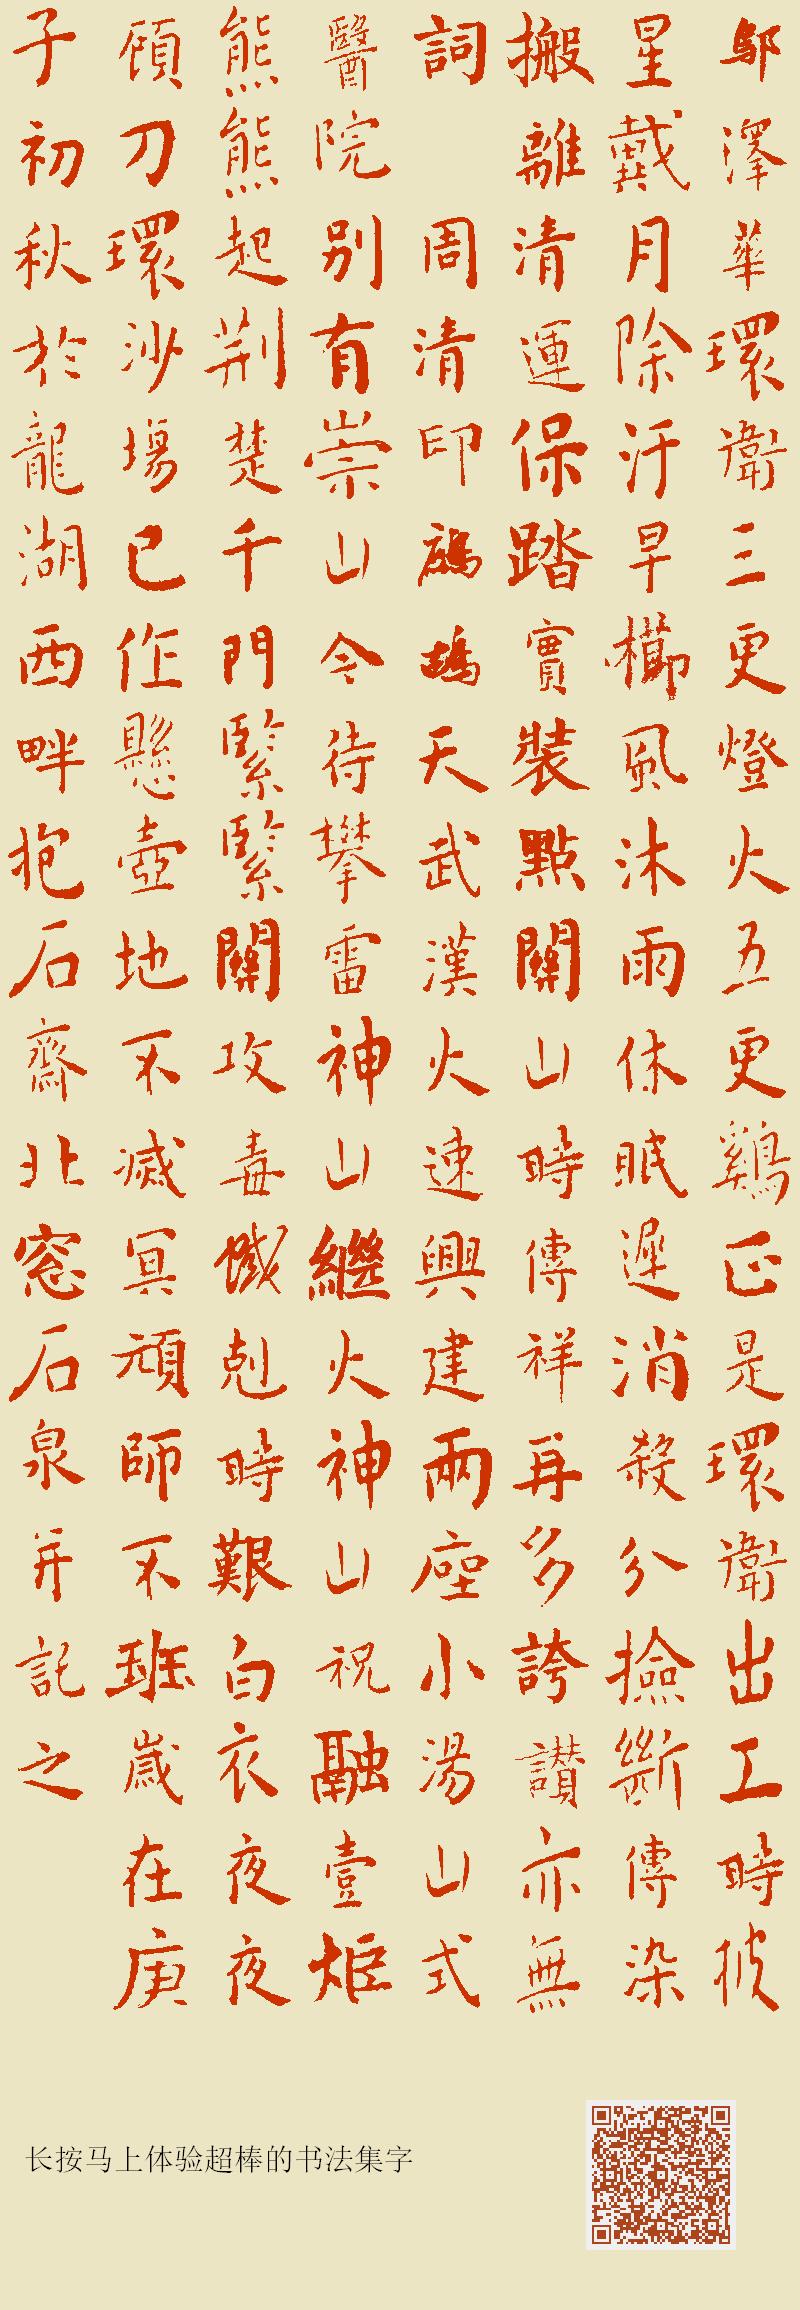 鄔澤華環衛三更燈火五更鷄正是環衛出工時披
星戴月除汙早櫛風沐雨休眠遲消殺分撿斷傳染
搬離清運保踏實裝點關山時傳祥再多誇讚亦無
詞 周清印鷓鴣天武漢火速興建兩座小湯山式
醫院別有崇山今待攀雷神山繼火神山祝融壹炬
熊熊起荆楚千門緊緊關攻毒殲剋時艱白衣夜夜
顧刀環沙場已作懸壺地不滅冥頑師不班歲在庚
子初秋於龍湖西畔抱石齋北窓石泉并記之
长按马上体验超棒的书法集字